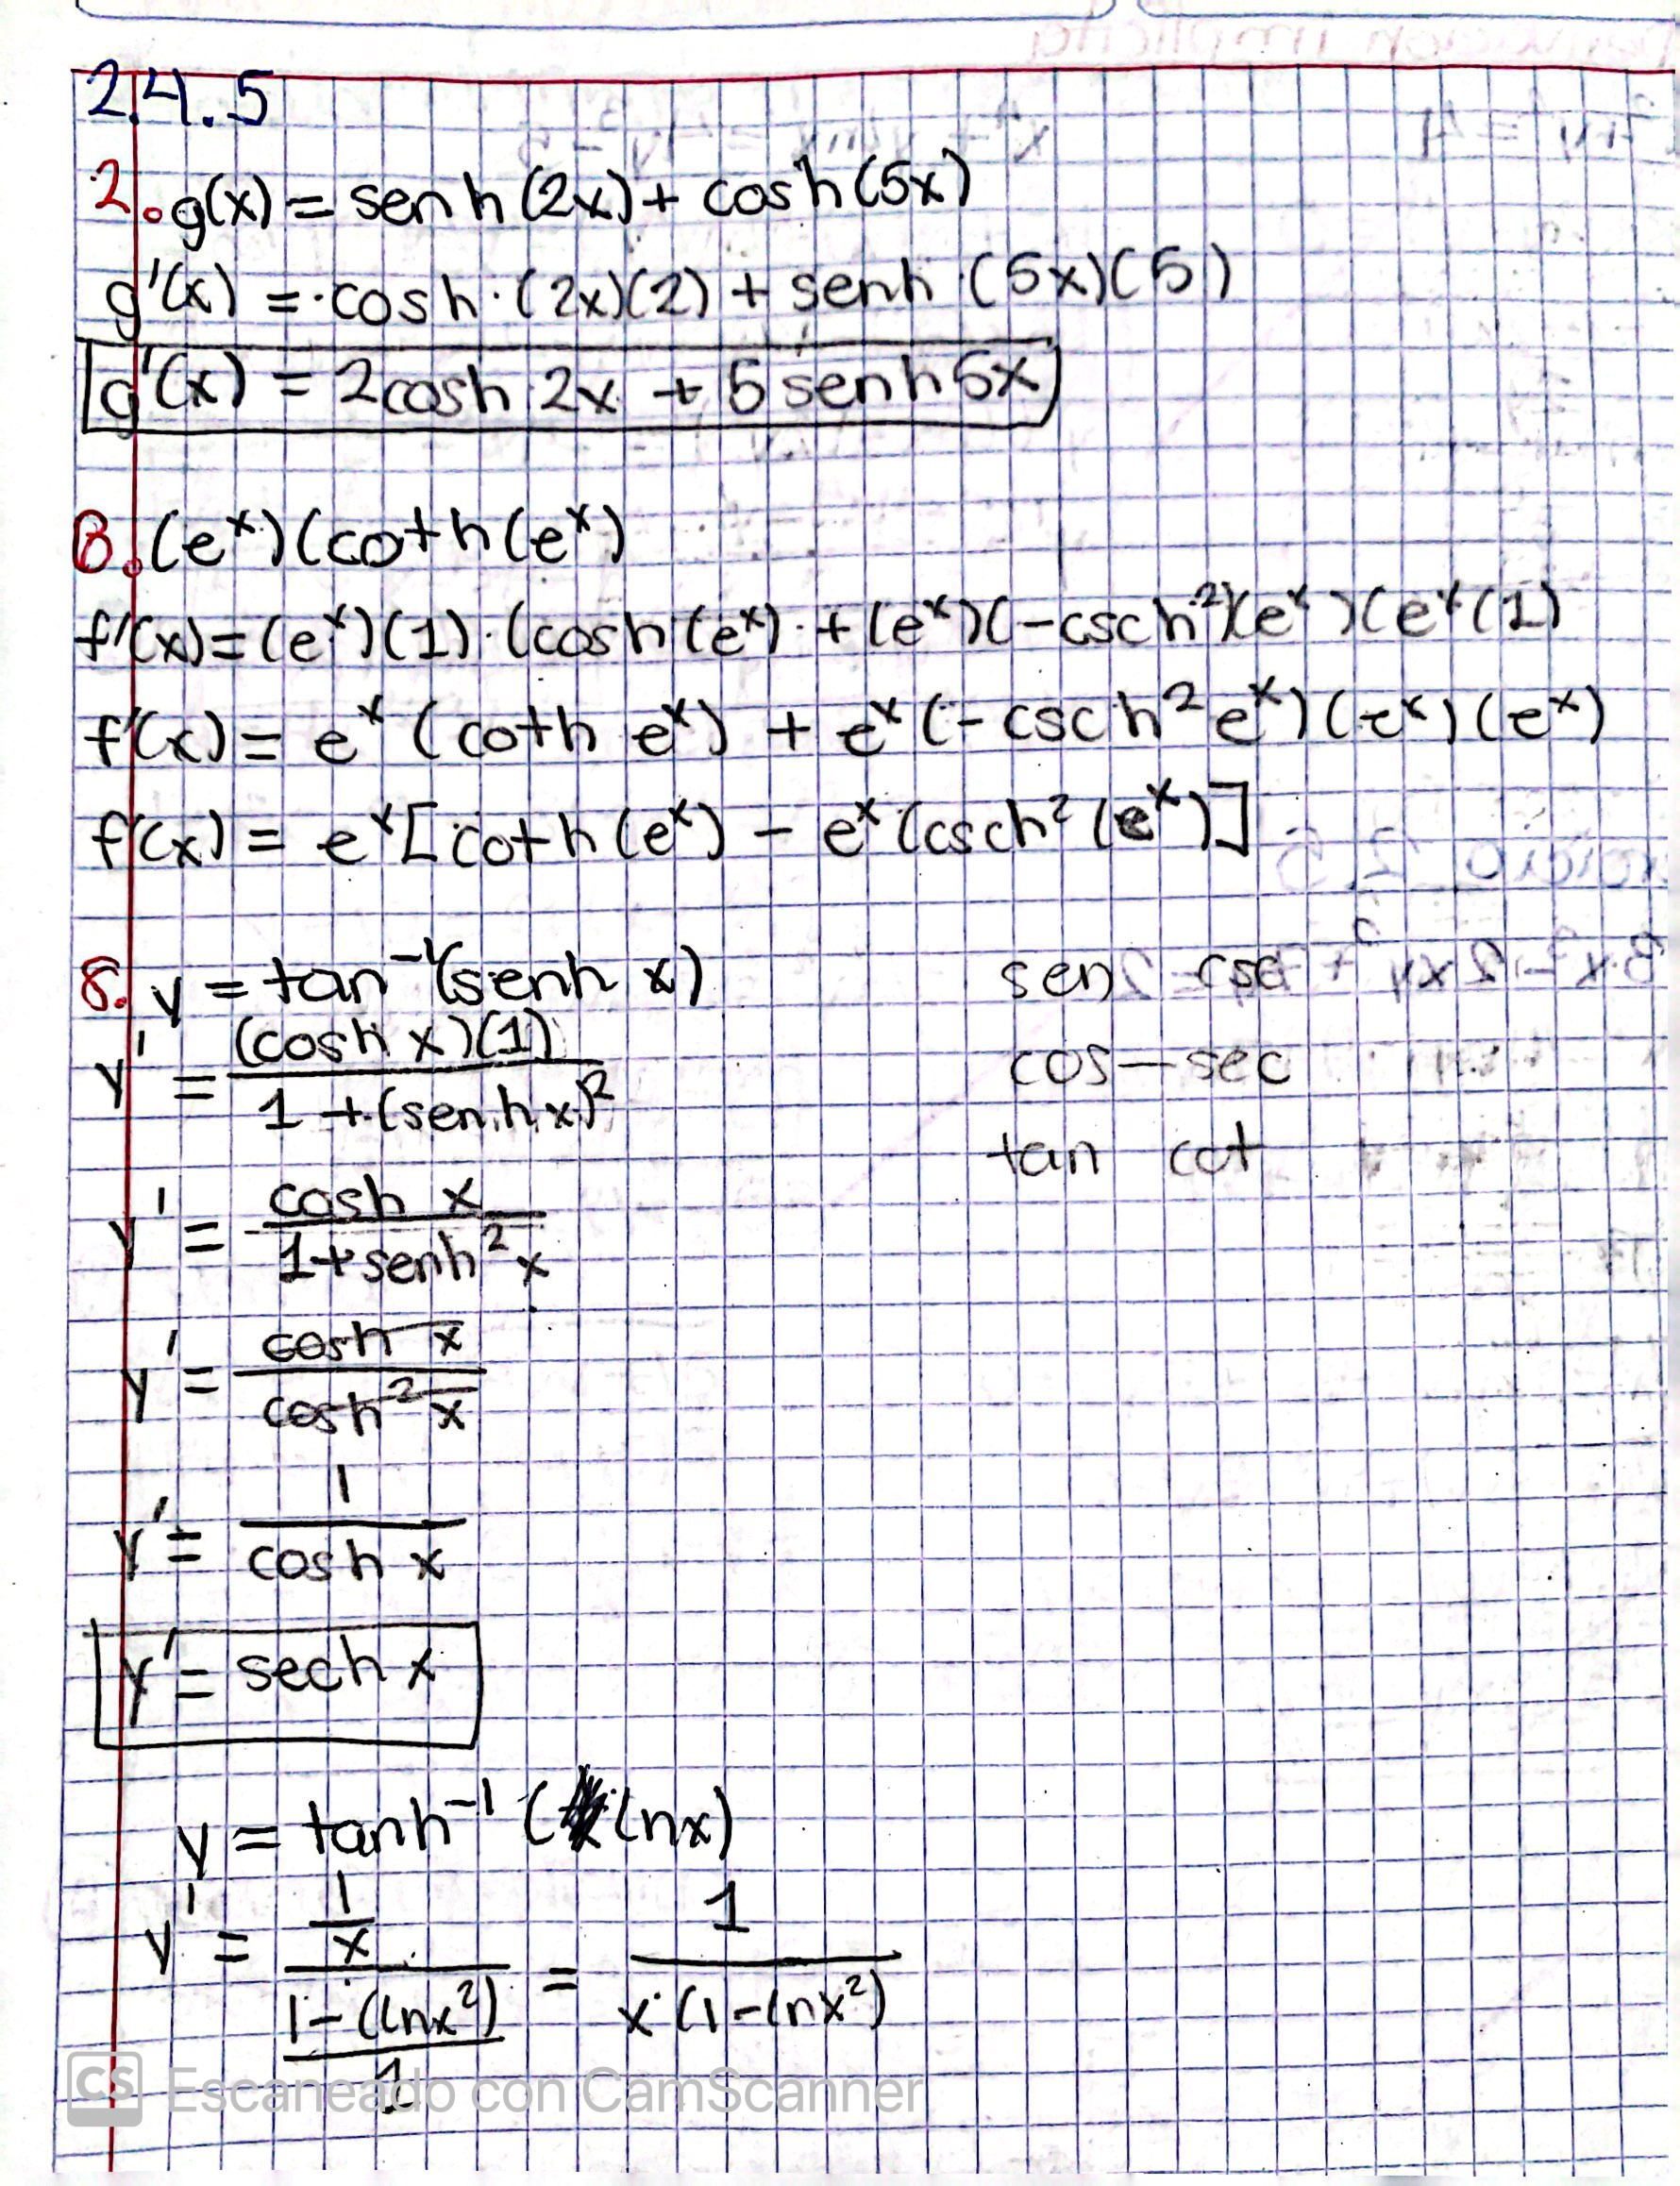 2.4.5
2. g(x) = senh(2x) + cosh(5x)
g'(x) = cosh·(2x)(2) + senh·(5x)(5)
g'(x) = 2cosh 2x + 5 senh 5x
B. (eˣ)(coth(eˣ)
f'(x) = (eˣ)(1)·(cosh(eˣ)·+(eˣ)(-csch²)(eˣ)(eˣ(1)
f'(x) = eˣ (coth eˣ) + eˣ (-csch² eˣ)(eˣ)(eˣ)
f'(x) = eˣ[coth(eˣ) - eˣ(csch²(eˣ)]
8. y = tan⁻¹(senh x)
y' = (cosh x)(1)
1 + (senh x)²
y' = cosh x
1+senh² x
y' = cosh x
cosh² x
y' = 1
cosh x
y' = sech x
sen csc
cos – sec
tan cot
y = tanh⁻¹ (lnx)
y' = 1/x = 1
1-(lnx²) x·(1-lnx²)
1
CS Escaneado con CamScanner